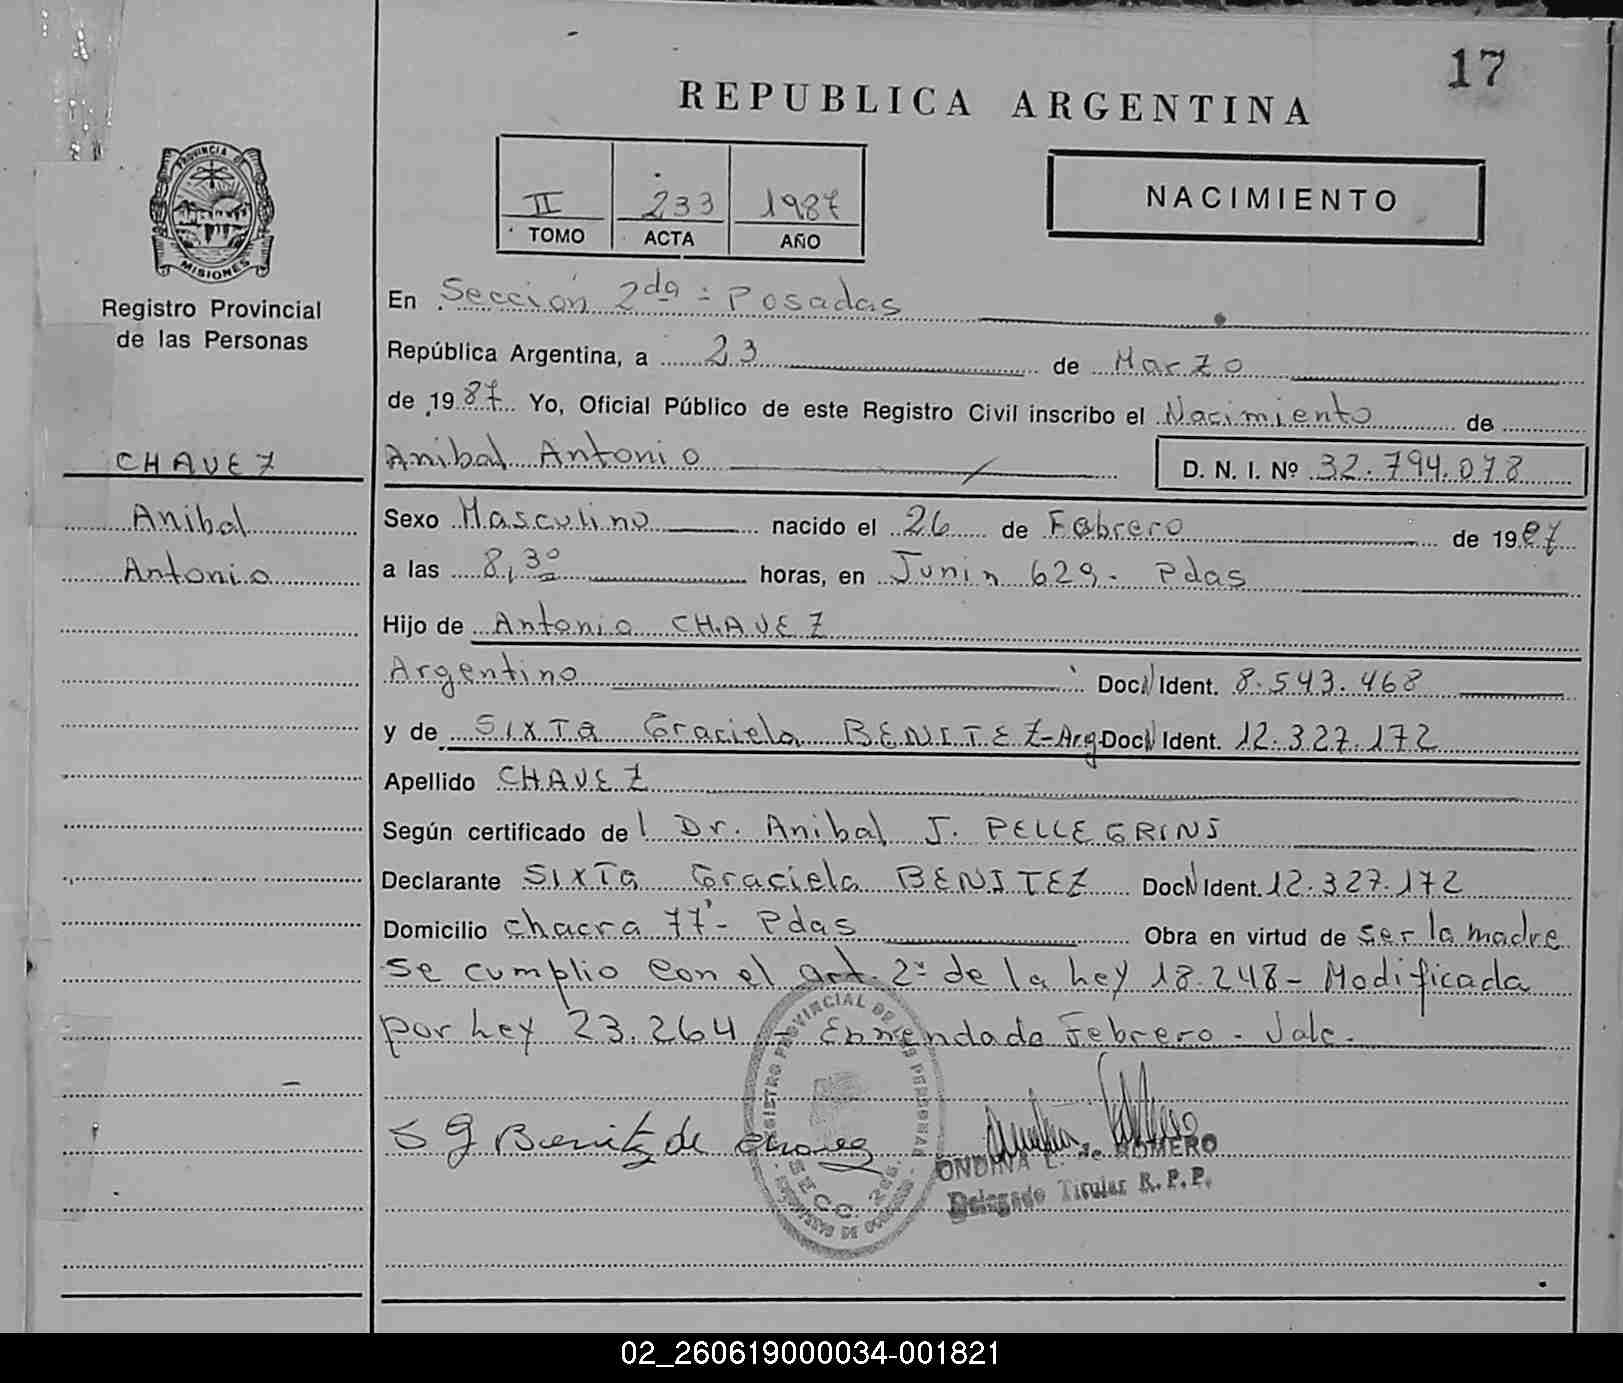 17
REPUBLICA ARGENTINA
II 233 1987
TOMO ACTA AÑO
NACIMIENTO
PROVINCIA DE
MISIONES
Registro Provincial
de las Personas
CHAVEZ
Anibal
Antonio
En Sección 2da = Posadas
República Argentina, a 23 de Marzo
de 1987 Yo, Oficial Público de este Registro Civil inscribo el Nacimiento de
Anibal Antonio D. N. I. Nº 32.794.078
Sexo Masculino nacido el 26 de Febrero de 1987
a las 8,30 horas, en Junin 629 - Pdas
Hijo de Antonio CHAVEZ
Argentino Doc. Ident. 8.543.468
y de SIXTA Graciela BENITEZ - Arg Doc. Ident. 12.327.172
Apellido CHAVEZ
Según certificado del Dr. Anibal J. PELLEGRINI
Declarante SIXTA Graciela BENITEZ Doc. Ident. 12.327.172
Domicilio Chacra 77 - Pdas Obra en virtud de ser la madre
se cumplio con el art. 2º de la Ley 18.248 - Modificada
por Ley 23.264 - Enmendado Febrero - Vale -
REGISTRO PROVINCIAL DE LAS PERSONAS
SECC. 2da.
S G Benitez de Chavez
ONDINA E. de ROMERO
Delegado Titular R. P. P.
02_260619000034-001821